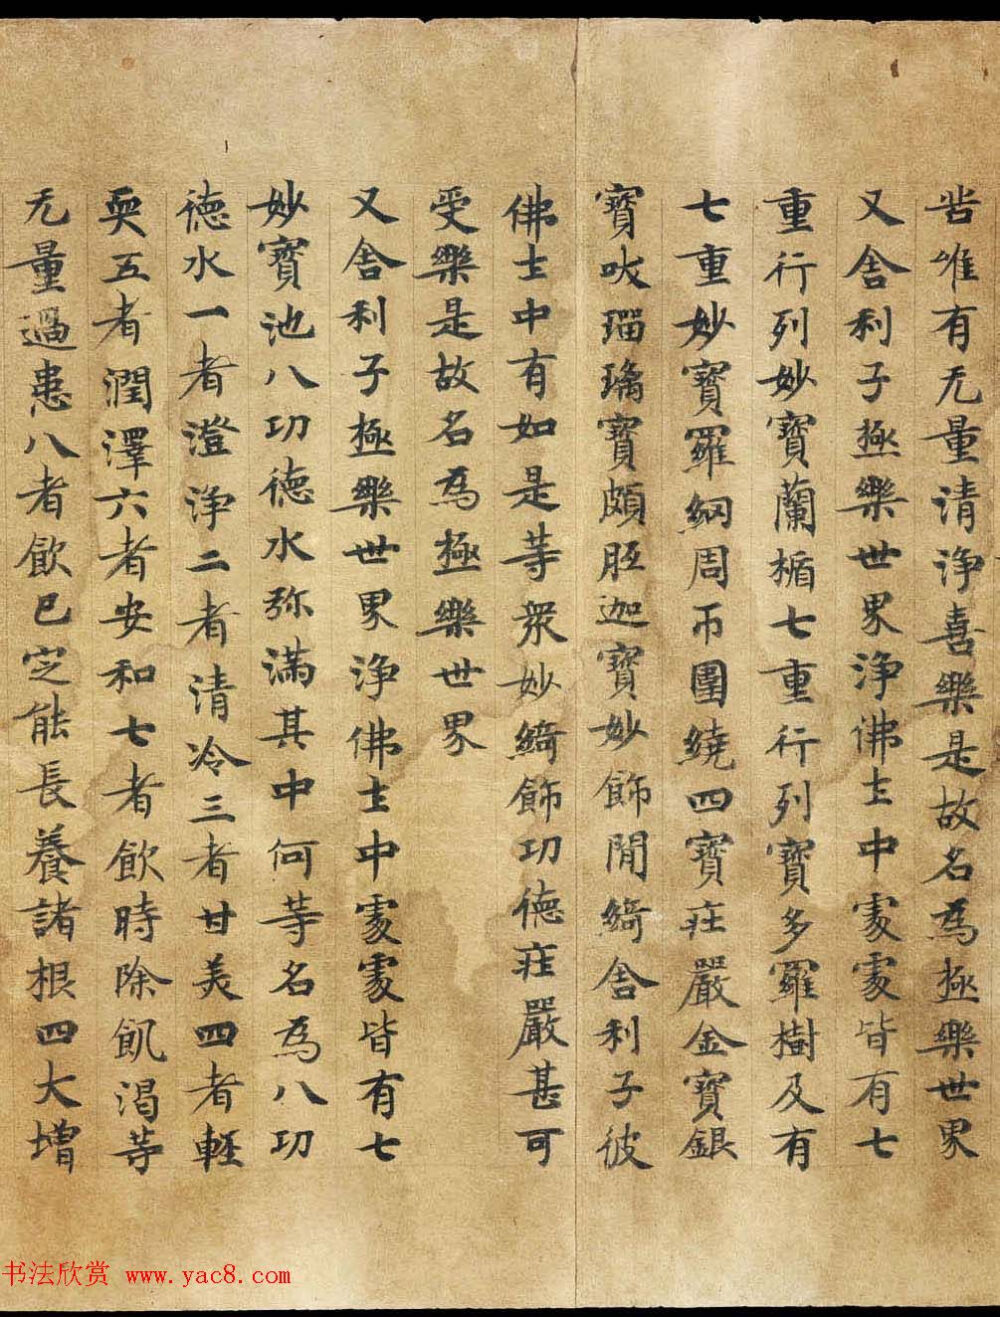 苦唯有无量清浄喜樂是故名為極樂世界
又舍利子極樂世界浄佛土中處處皆有七
重行列妙寶蘭楯七重行列寶多羅樹及有
七重妙寶羅網周帀圍繞四寶莊嚴金寶銀
寶吠瑠璃寶頗胝迦寶妙飾間綺舍利子彼
佛土中有如是等衆妙綺飾功德莊嚴甚可
受樂是故名為極樂世界
又舍利子極樂世界浄佛土中處處皆有七
妙寶池八功德水弥滿其中何等名為八功
德水一者澄浄二者清冷三者甘美四者輕
耎五者潤澤六者安和七者飲時除飢渴等
无量過患八者飲已定能長養諸根四大增
书法欣赏 www.yac8.com